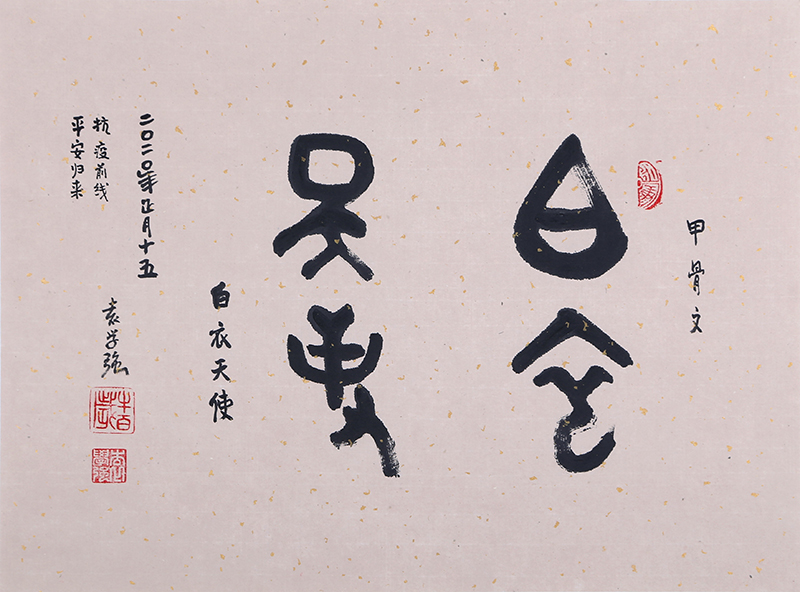 甲骨文
白衣
天使
白衣天使
二〇二〇年正月十五
抗疫前线
平安归来
袁学强